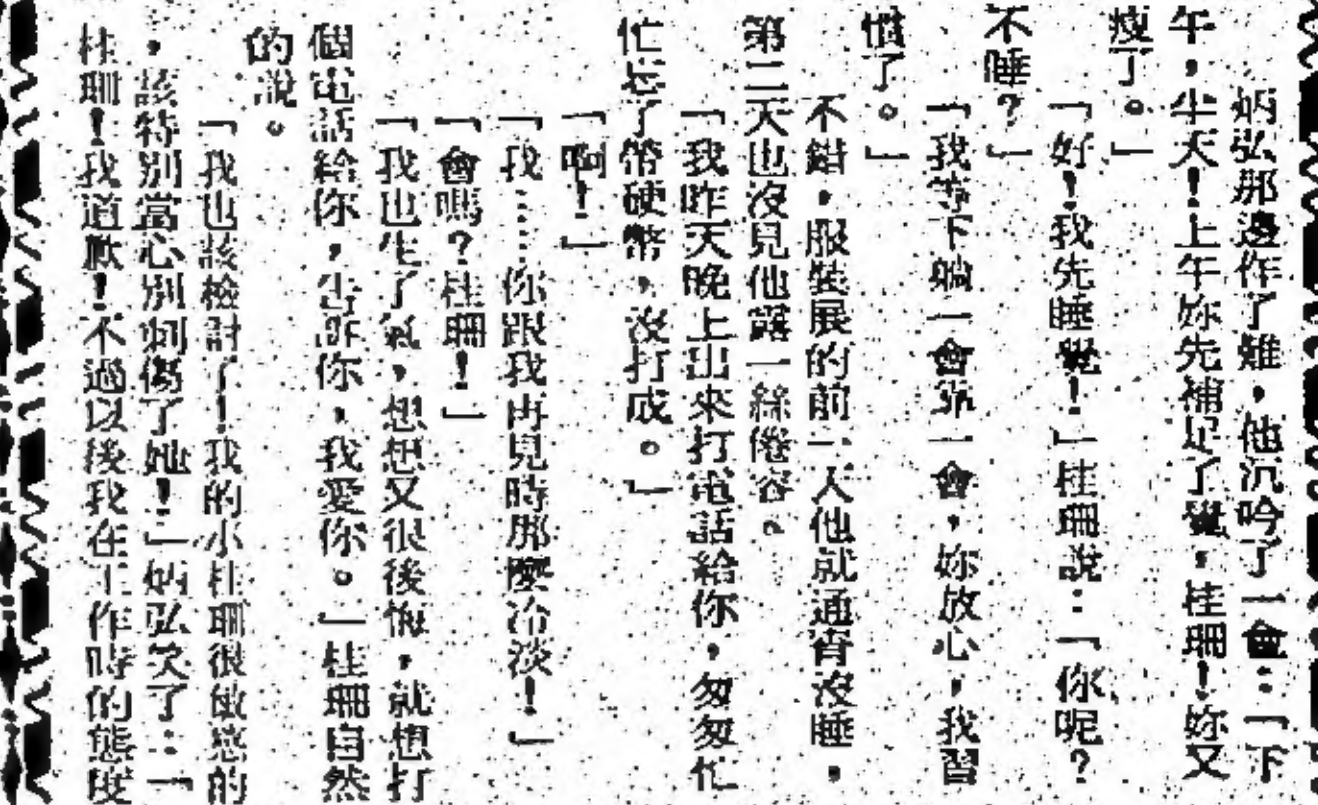 炳弘那邊作了難，他沉吟了一會：「下
午，半天！上午妳先補足了覺，桂珊！妳又
瘦了。」
「好！我先睡覺！」桂珊說：「你呢？
不睡？」
「我等下躺一會靠一會，妳放心，我習
慣了。」
不錯，服裝展的前一天他就通宵沒睡，
第二天也沒見他露一絲倦容。
「我昨天晚上出來打電話給你，匆匆忙
忙忘了帶硬幣，沒打成。」
「啊！」
「我……你跟我再見時那麼冷淡！」
「會嗎？桂珊！」
「我也生了氣，想想又很後悔，就想打
個電話給你，告訴你，我愛你。」桂珊自然
的說。
「我也該檢討了！我的小桂珊很敏感的
，該特別當心別刺傷了她！」炳弘笑了：「
桂珊！我道歉！不過以後我在工作時的態度